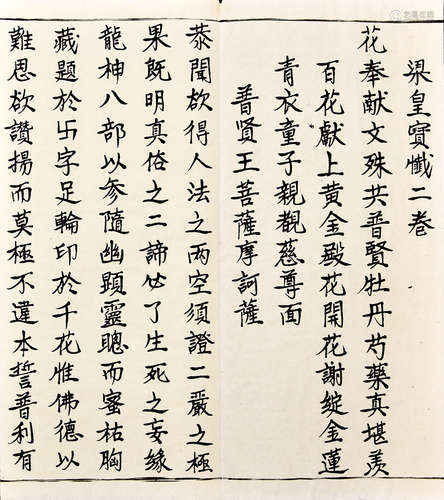 梁皇寳懺二卷
花奉献文殊共普賢牡丹芍藥真堪羨
百花獻上黄金殿花開花謝綻金蓮
青衣童子親覩慈尊面
普贤王菩薩摩訶薩
恭聞欲得人法之两空須證二嚴之極
果既明真俗之二諦必了生死之妄緣
龍神八部以参隨幽顕靈聰而蜜枯胸
藏题於卐字足輪印於千花惟佛德以
難思欲讚揚而莫極不違本誓普利有